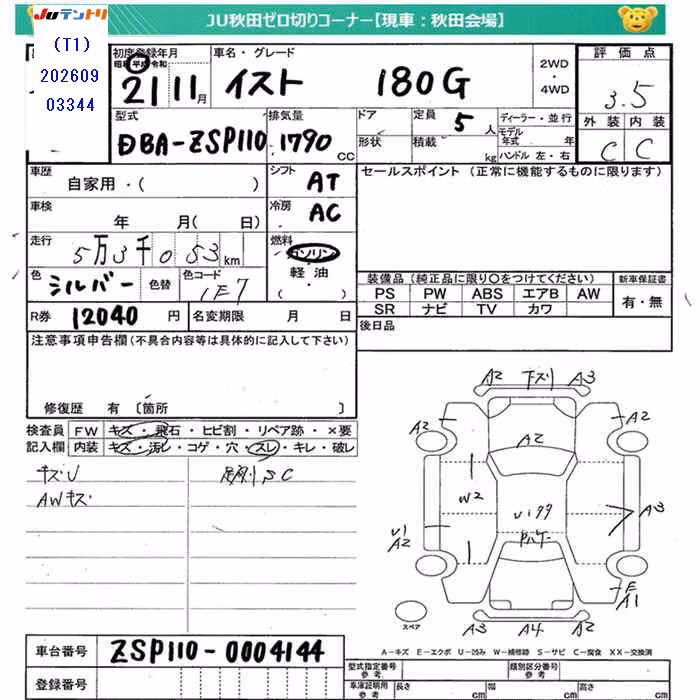 JUテントリ
JU秋田ゼロ切りコーナー【現車：秋田会場】
(T1)
202609
03344
初度登録年月
昭和 平成 令和
21 11月
車名・グレード
イスト 180G
2WD
・
4WD
評価点
3.5
外装 内装
C C
型式
DBA-ZSP110
排気量
1790 CC
ドア
形状
定員 5人
積載 kg
ディーラー・並行
モデル年式 年
ハンドル 左・右
車歴
自家用・( )
シフト
AT
車検
年 月( 日)
冷房
AC
走行
5万3千053km
燃料
ガソリン
軽・油
( ・ )
色
シルバー
色替
色コード
1E7
R券 12040円
名変期限 月 日
セールスポイント (正常に機能するものに限ります)
装備品 (純正品に限り○をつけてください)
PS PW ABS エアB AW
SR ナビ TV カワ
新車保証書
有・無
後日品
注意事項申告欄(不具合内容等は具体的に記入して下さい)
修復歴 有〔箇所 〕
検査員記入欄
FW キズ・飛石・ヒビ割・リペア跡・×要
内装 キズ・汚レ・コゲ・穴・スレ・キレ・破レ
キズU
AWキズ
SC
A2 下ズリ A3
A2
A2
A2
W2
U1
A2
A3
E
A1
A3 A4 A2
スペア
A-キズ E-エクボ U-凹み W-補修跡 S-サビ C-腐食 XX-交換済
車台番号 ZSP110-0004144
登録番号
型式指定番号
参考
類別区分番号
参考
車庫証明用
参考
長さ cm
幅 cm
高さ cm